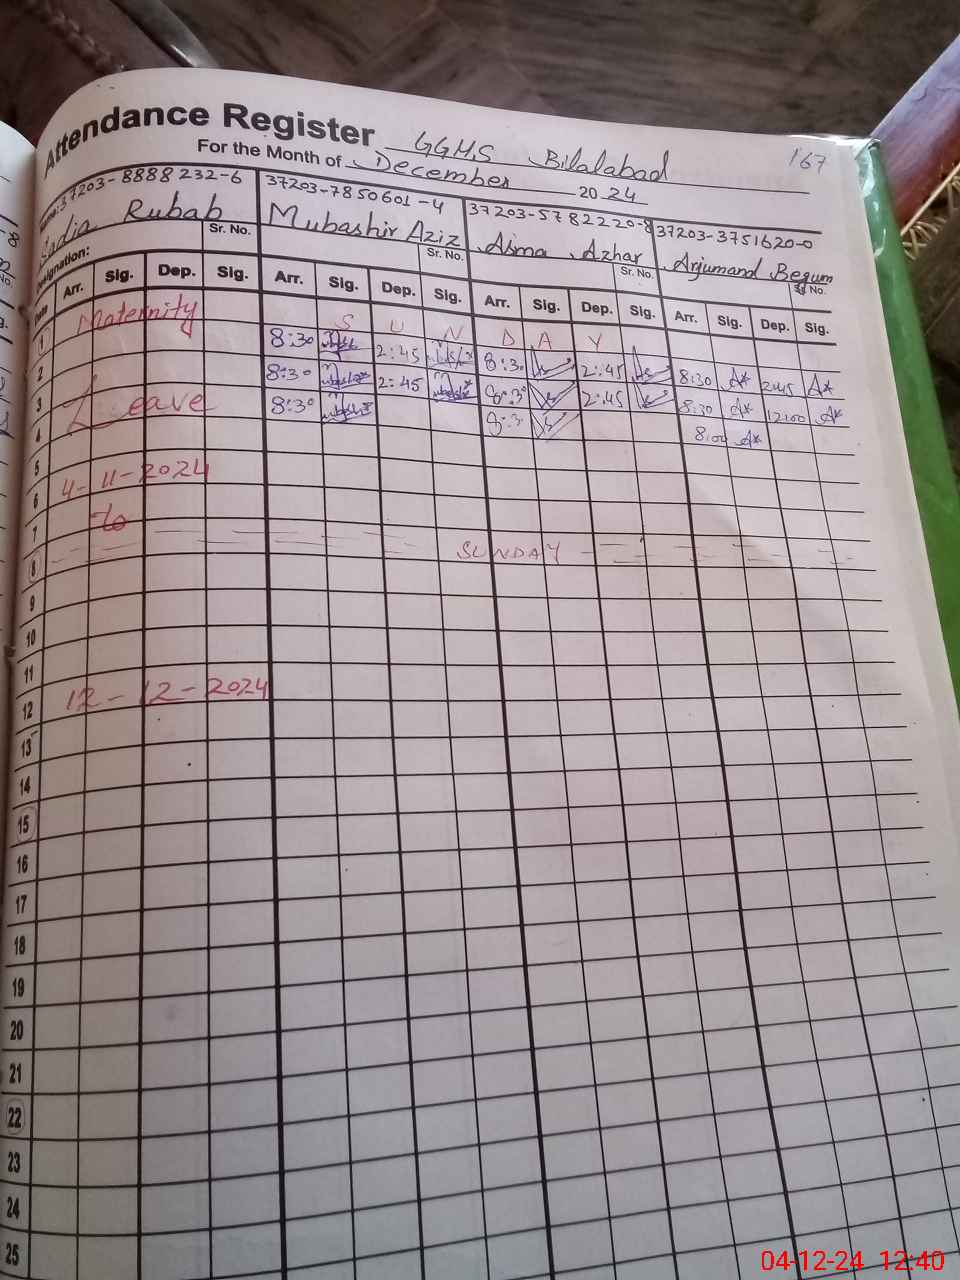 167
Attendance Register GGHS Bilalabad
For the Month of December 2024
Name: 37203-8888232-6 37203-7850601-4 37203-5782220-8 37203-3751620-0
Sadia Rubab Mubashir Aziz Asma Azhar Arjumand Begum
Designation: Sr. No. Sr. No. Sr. No. Sr. No.
Date Arr. Sig. Dep. Sig. Arr. Sig. Dep. Sig. Arr. Sig. Dep. Sig. Arr. Sig. Dep. Sig.
1 Maternity S U N D A Y
2 8:30 2:45 8:30 2:45 8:30 A* 2:45 A*
3 Leave 8:30 2:45 8:30 2:45 8:30 A* 12:00 A*
4 8:30 8:30 8:00 A*
5 4-11-2024
6 to
7
8 SUNDAY
9
10
11
12 12-12-2024
13
14
15
16
17
18
19
20
21
22
23
24
25
04-12-24 12:40